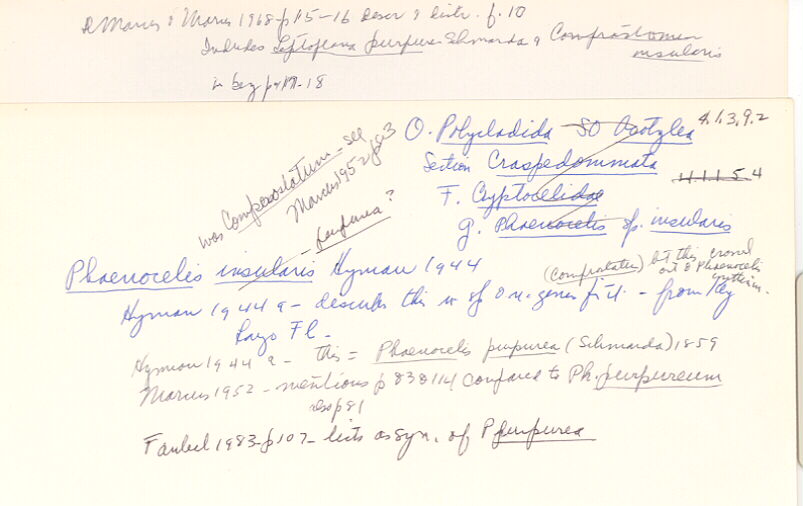 Marcus & Marcus 1968-p15-16 descr & distr. f.10
Includes Leptoplana purpurea Schmarda & Comprostomum
insularis
in key p 17-18
O. Polycladida SO Acotylea 4.1.3.9.2
Section Craspedommata
4.1.1.5.4
F. Cryptocelidae
g. Phaenocelis sp. insularis
was Comprostatum - see
Marcus 1952 p83
- purpurea?
Phaenocelis insularis Hyman 1944
(Comprostatum) but this crossed
out & Phaenocelis
written.
Hyman 1944a - describes this n. sp. of n. genus fig 4. - from Key
Largo Fl -
Hyman 1944a - this = Phaenocelis purpurea (Schmarda) 1859
Marcus 1952 - mentions p 83 & 114 compared to Ph. purpureum
also p 81
Faubel 1983-p107- lists as syn. of P. purpurea